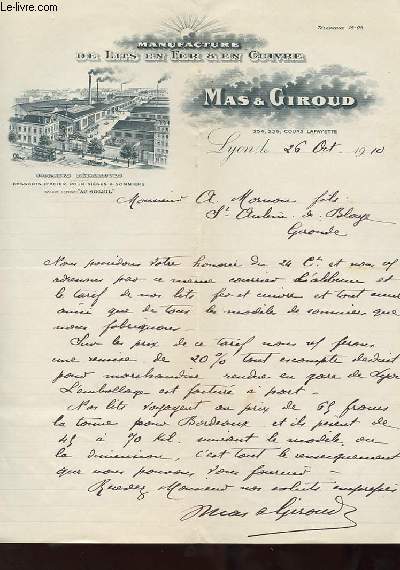 Le-livre.com
MANUFACTURE
DE LITS EN FER & EN CUIVRE
TÉLÉPHONE
MAS & GIROUD
COURS LAFAYETTE
Lyon, le 26 Oct. 1910
Monsieur A. fils
St Aubin de Blaye
Gironde
Nous possédons votre honorée du 24 Ct. et nous vs
adressons par ce même courrier l'album et
le tarif de nos lits fer et cuivre et tout
ainsi que de tous les modèles de sommier que
nous fabriquons -
Sur les prix de ce tarif nous vs ferons
une remise de 20 % tout escompte déduit
pour marchandise rendue en gare de Lyon
L'emballage est facturé à part -
Nos lits voyagent au prix de 65 francs
la tonne pour Bordeaux et ils pèsent de
45 à 70 Kil. suivant le modèle ou
la dimension, c'est tout le renseignement
que nous pouvons vous fournir -
Recevez Monsieur nos saluts empressés
Mas & Giroud